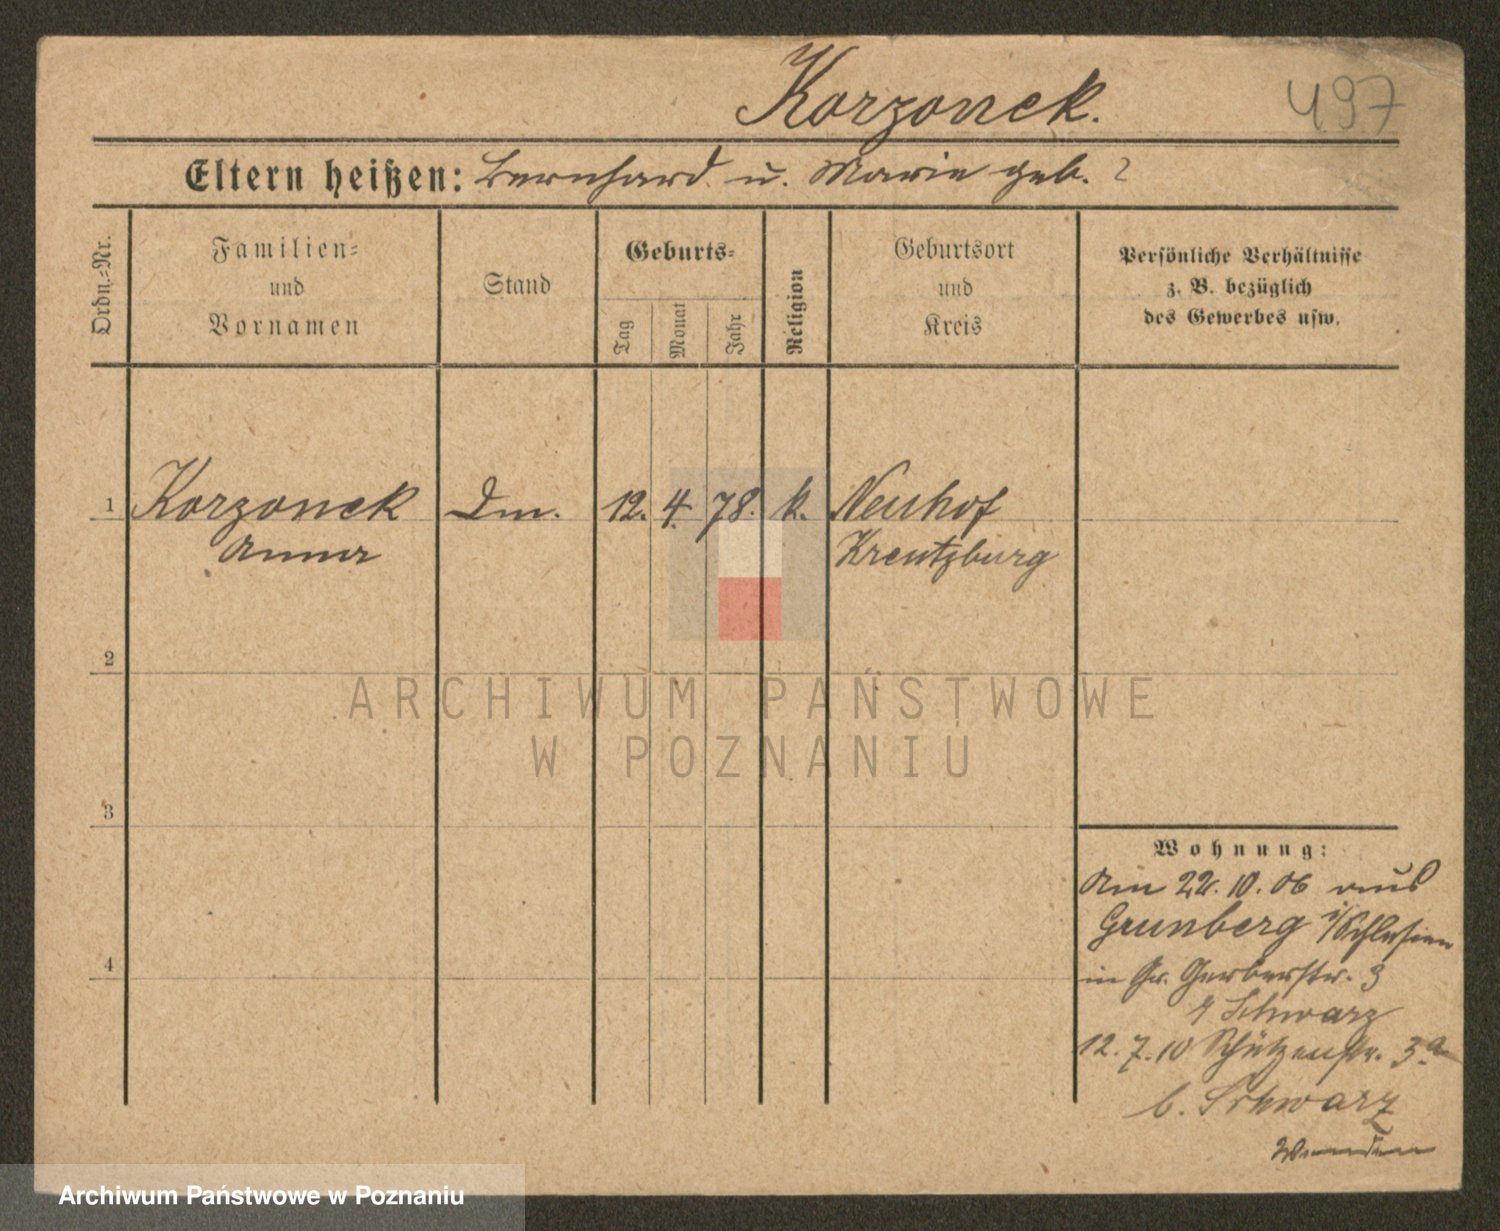 Korzonek.
497
Eltern heißen: Bernhard u. Marie geb. ?
Ordn.-Nr.
Familien-
und
Vornamen
Stand
Geburts-
Tag
Monat
Jahr
Religion
Geburtsort
und
Kreis
Persönliche Verhältnisse
z. B. bezüglich
des Gewerbes usw.
1 Korzonek Dm. 12. 4. 78. k. Neuhof
Anna Kreutzburg
2
3
4
Wohnung:
Am 22. 10. 06 aus
Grunberg i/Schlesien
in Gr. Gerberstr. 3
Schwarz
12. 7. 10 Schützenstr. 3a
b. Schwarz
Wenden
ARCHIWUM PAŃSTWOWE
W POZNANIU
Archiwum Państwowe w Poznaniu